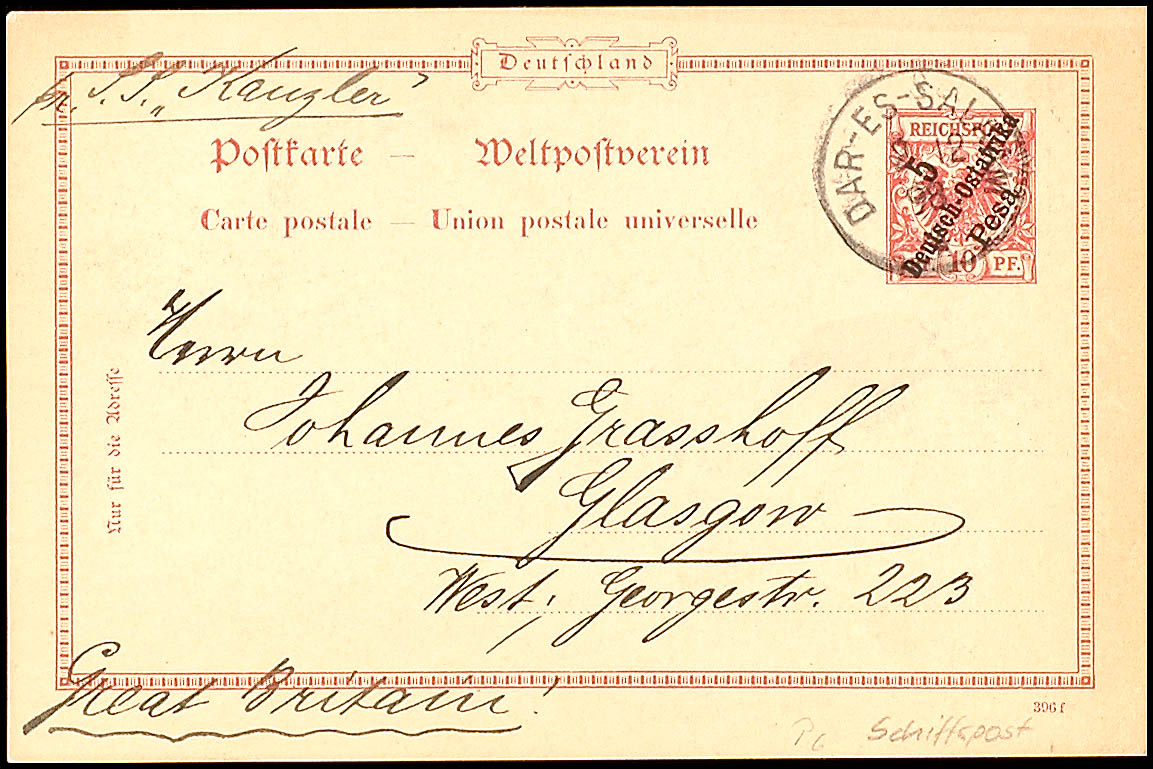 Deutschland
pr. S.S. „Kanzler"
Postkarte — Weltpostverein
Carte postale — Union postale universelle
DAR-ES-SAL
12
REICHSP
5
Deutsch-Ostafrika
Pesa
10 PF.
Nur für die Adresse
Herrn
Johannes Grasshoff
Glasgow
West, Georgestr. 223
Great Britain!
396 f
Schiffspost